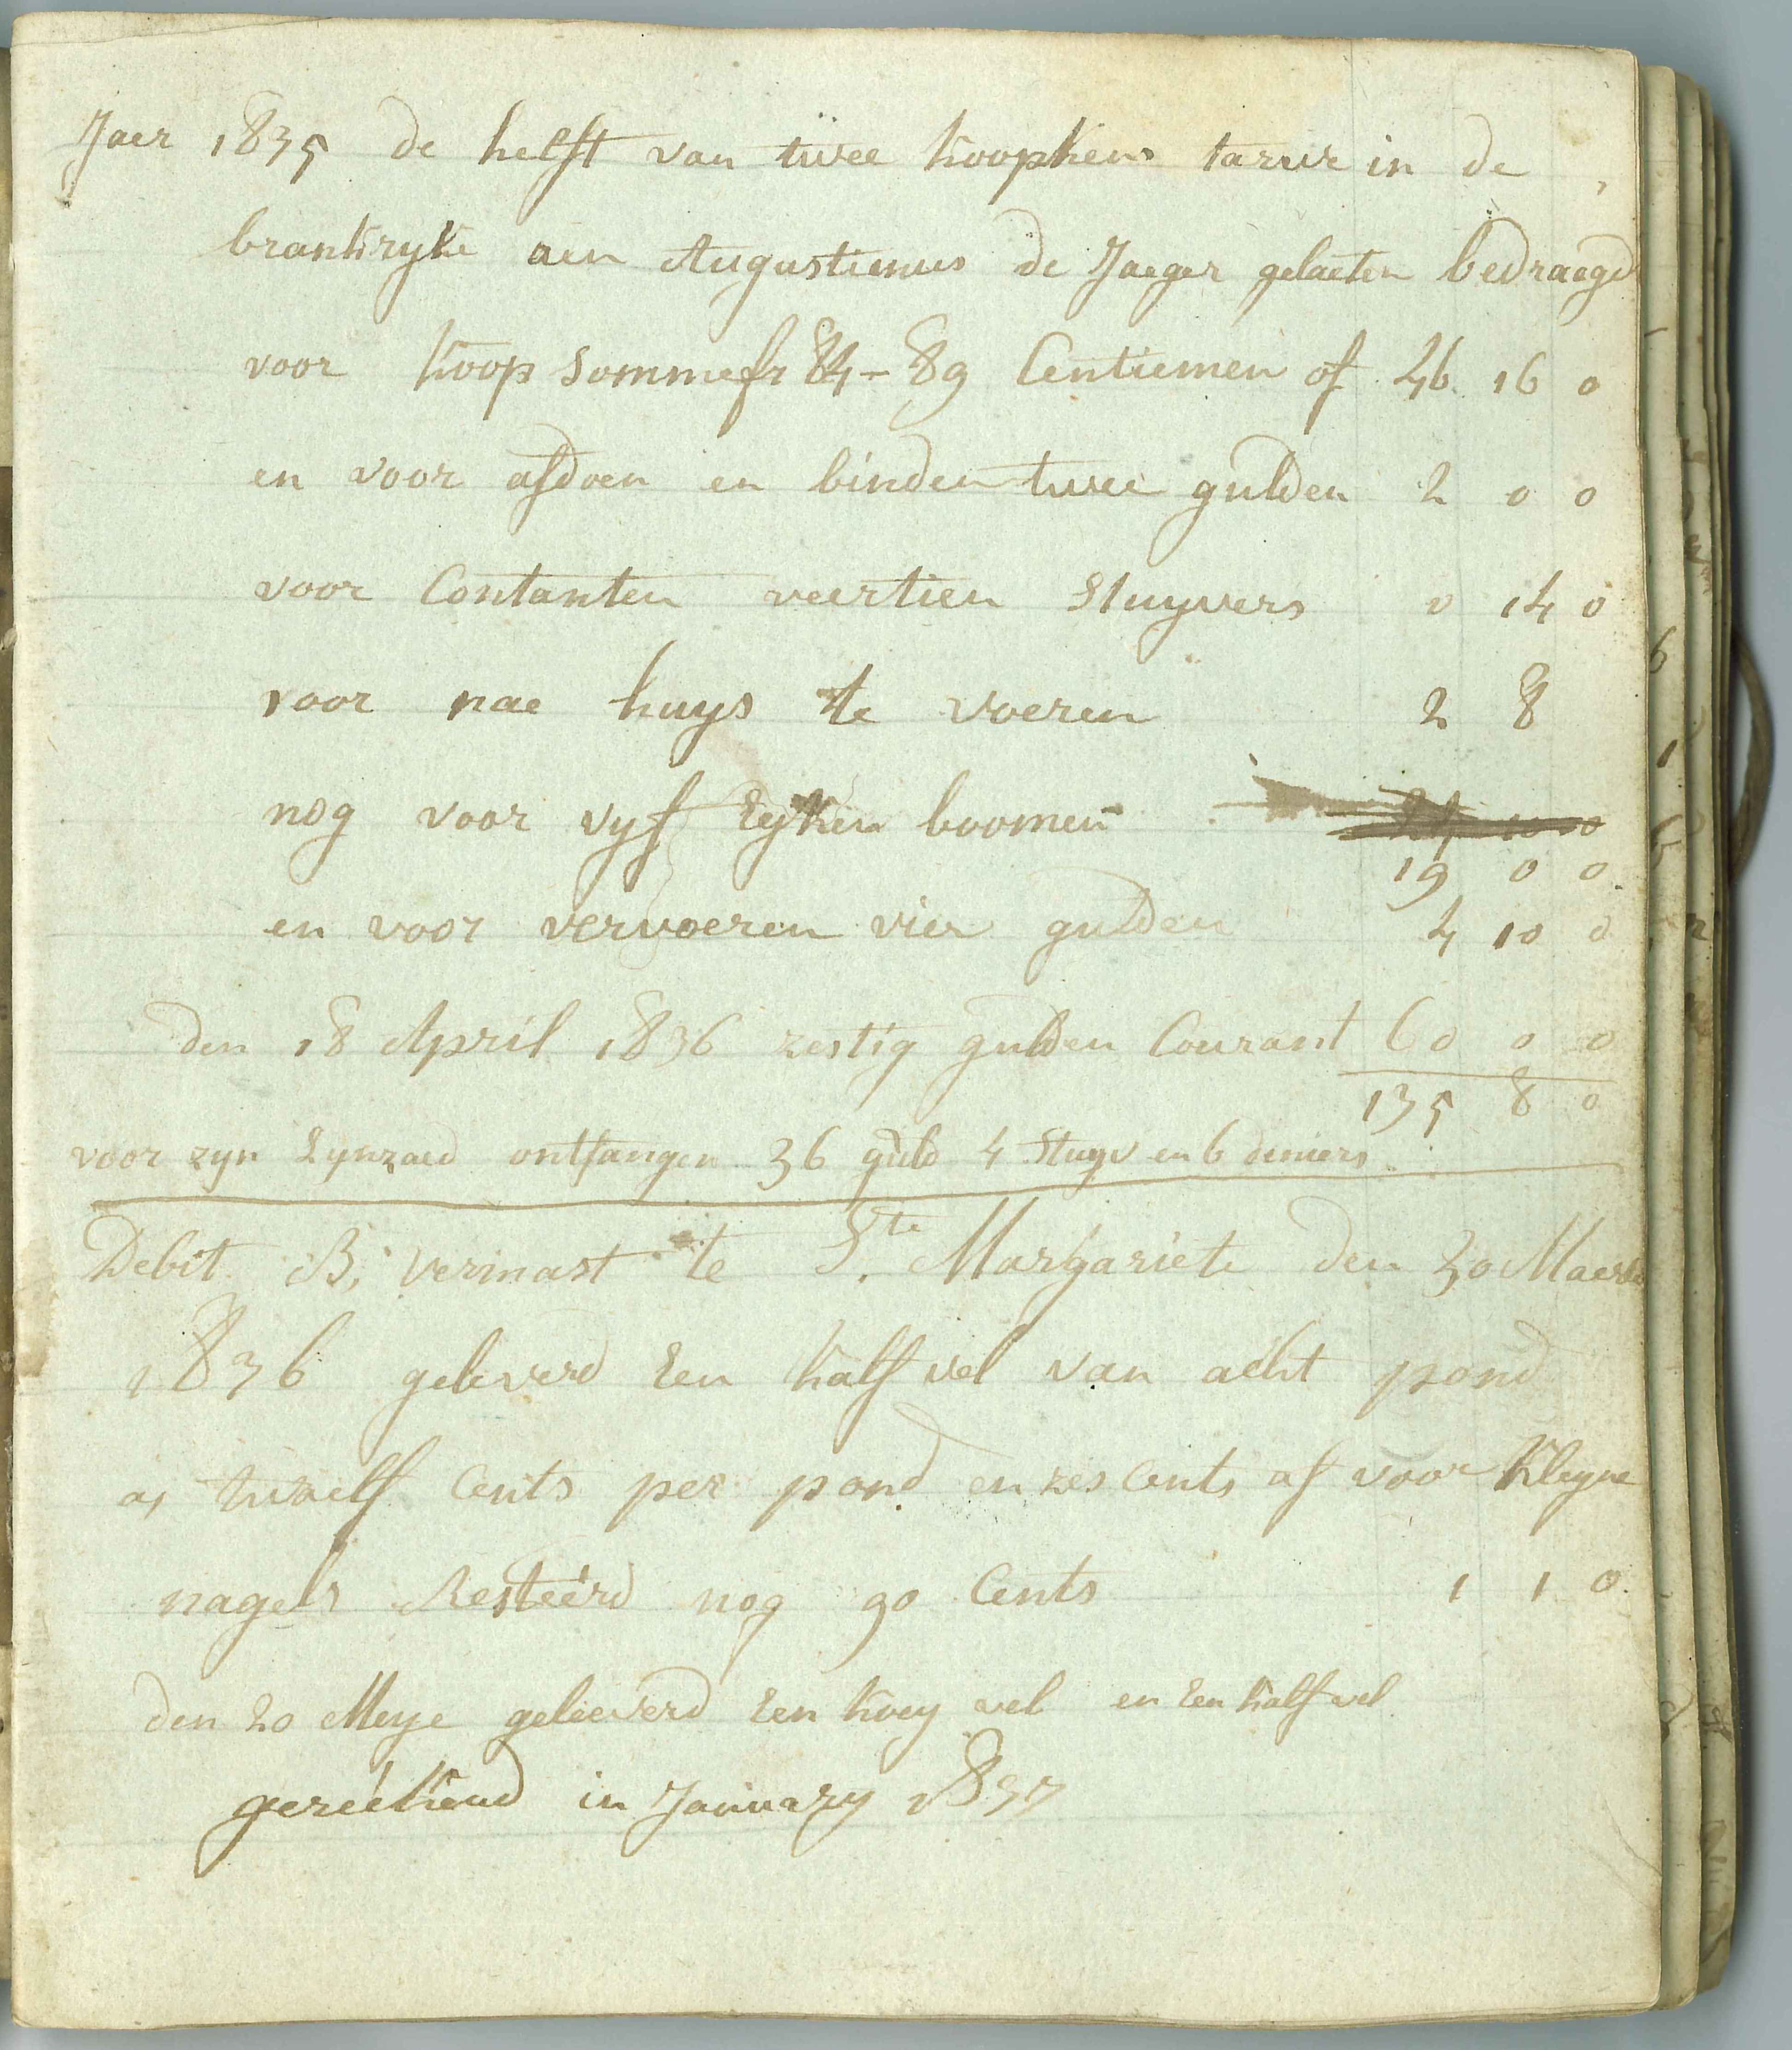 Jaer 1835 de helft van twee koopkens tarwe in de
brankryke aen Augustienus de Jaeger gelaeten bedraegd
voor koop somme fr 84 - 89 Centiemen of 46 16 0
en voor afdoen en binden twee gulden 2 0 0
voor Contanten veertien Stuyvers 0 14 0
voor nae huys te voeren 2 8
nog voor vyf Eyken boomen
19 0 0
en voor vervoeren vier gulden 4 10 0
den 18 April 1836 zestig gulden Courant 60 0 0
135 8 0
voor zyn Lynzaed ontfangen 36 guld 4 Stuyv en 6 deniers
Debit B, vermast te Ste Margariete den 30 Maerte
1836 geleverd Een kalf vel van acht pond
a, twaelf Cents per pond en zes Cents af voor kleyne
nagels Resteerd nog 90 Cents 1 1 0
den 20 Meye geleeverd Een koey vel en Een kalf vel
gereekend in January 1837